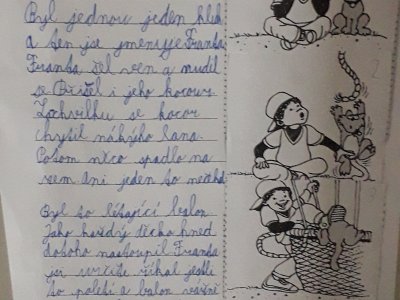 Byl jednou jeden kluk
a ten jse jmenuje Franta
Franta šel ven a nudil
se Přišel i jeho kocour.
Zachvilku se kocor
chytil nákýho lana.
Potom něco spadlo na
zem. Ani jeden to nečekal
Byl to létající balon.
Jako každý děcko hned
dotoho nastoupil. Franta
si určitě říkal jestli
to poletí a balon vážně